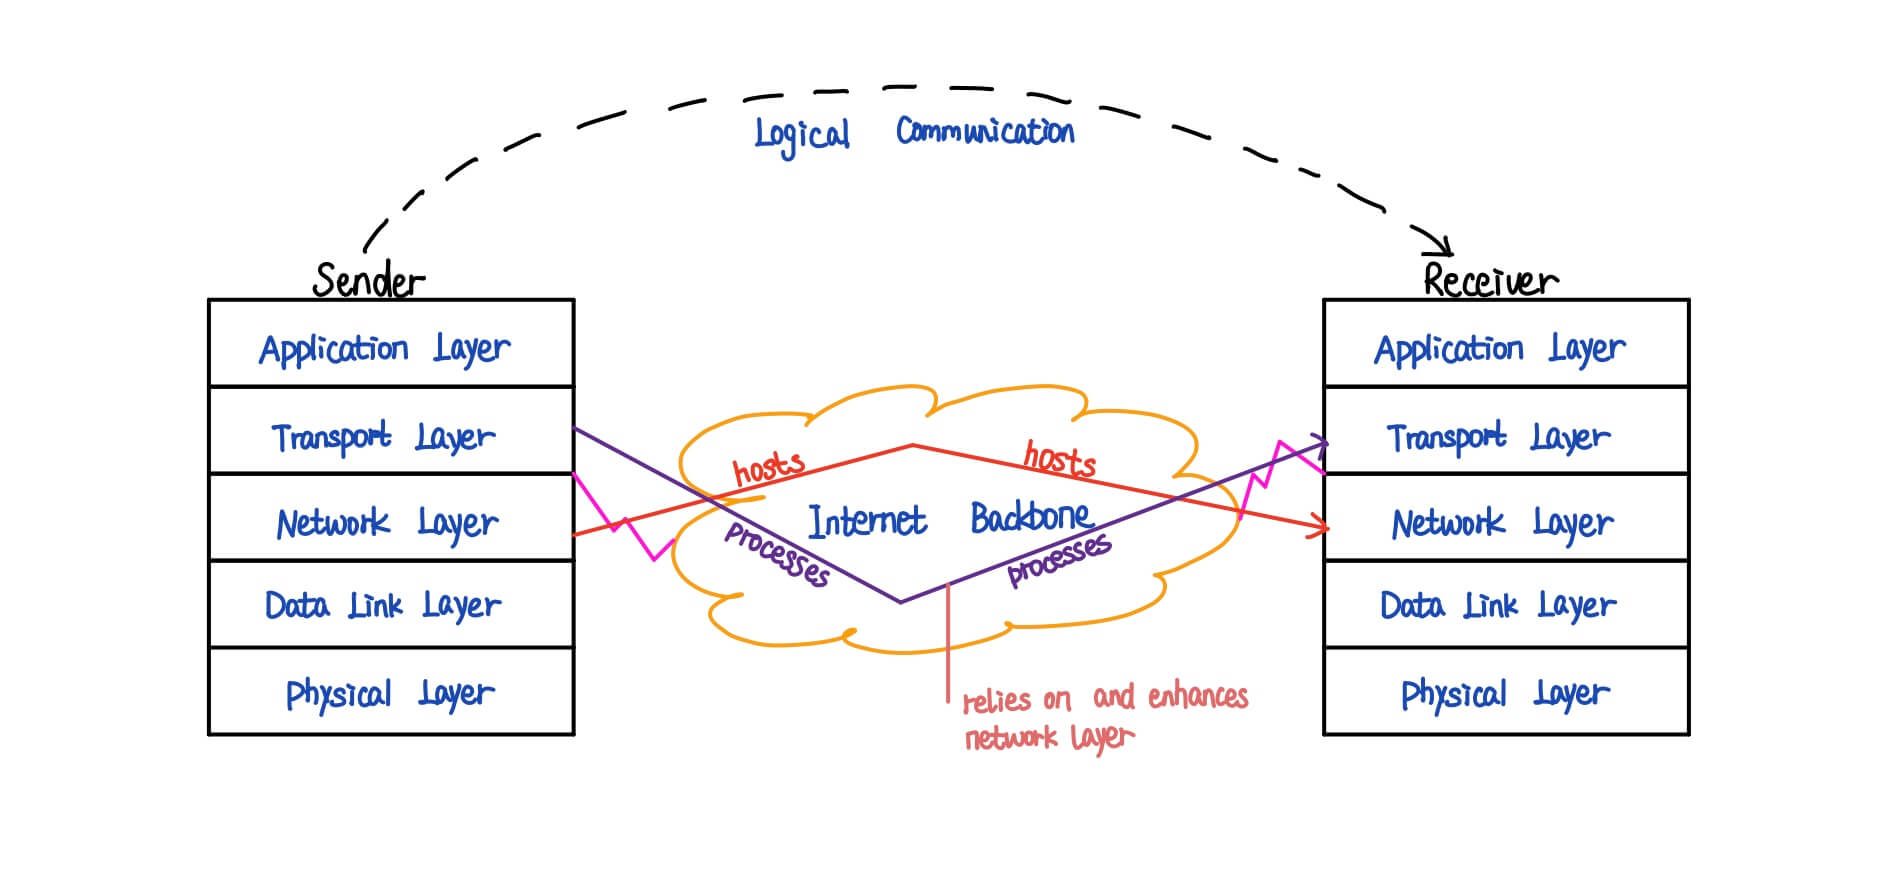 Logical Communication
Sender
Application Layer
Transport Layer
Network Layer
Data Link Layer
Physical Layer
hosts
hosts
Internet Backbone
processes
processes
relies on and enhances
network layer
Receiver
Application Layer
Transport Layer
Network Layer
Data Link Layer
Physical Layer